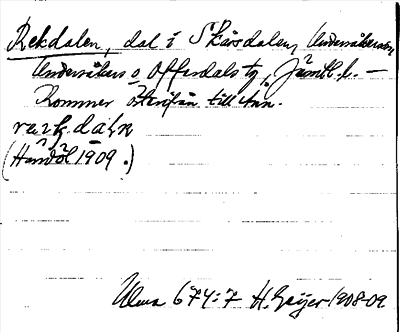 Rekdalen, dal i Skärsdalen, Undersåkers
Undersåkers o. Offerdals tg, Jämtl. l. —
Kommer österifrån till Ån.
(Handöl 1909.)
Ulma 674:7 H. Geijer 1908-09